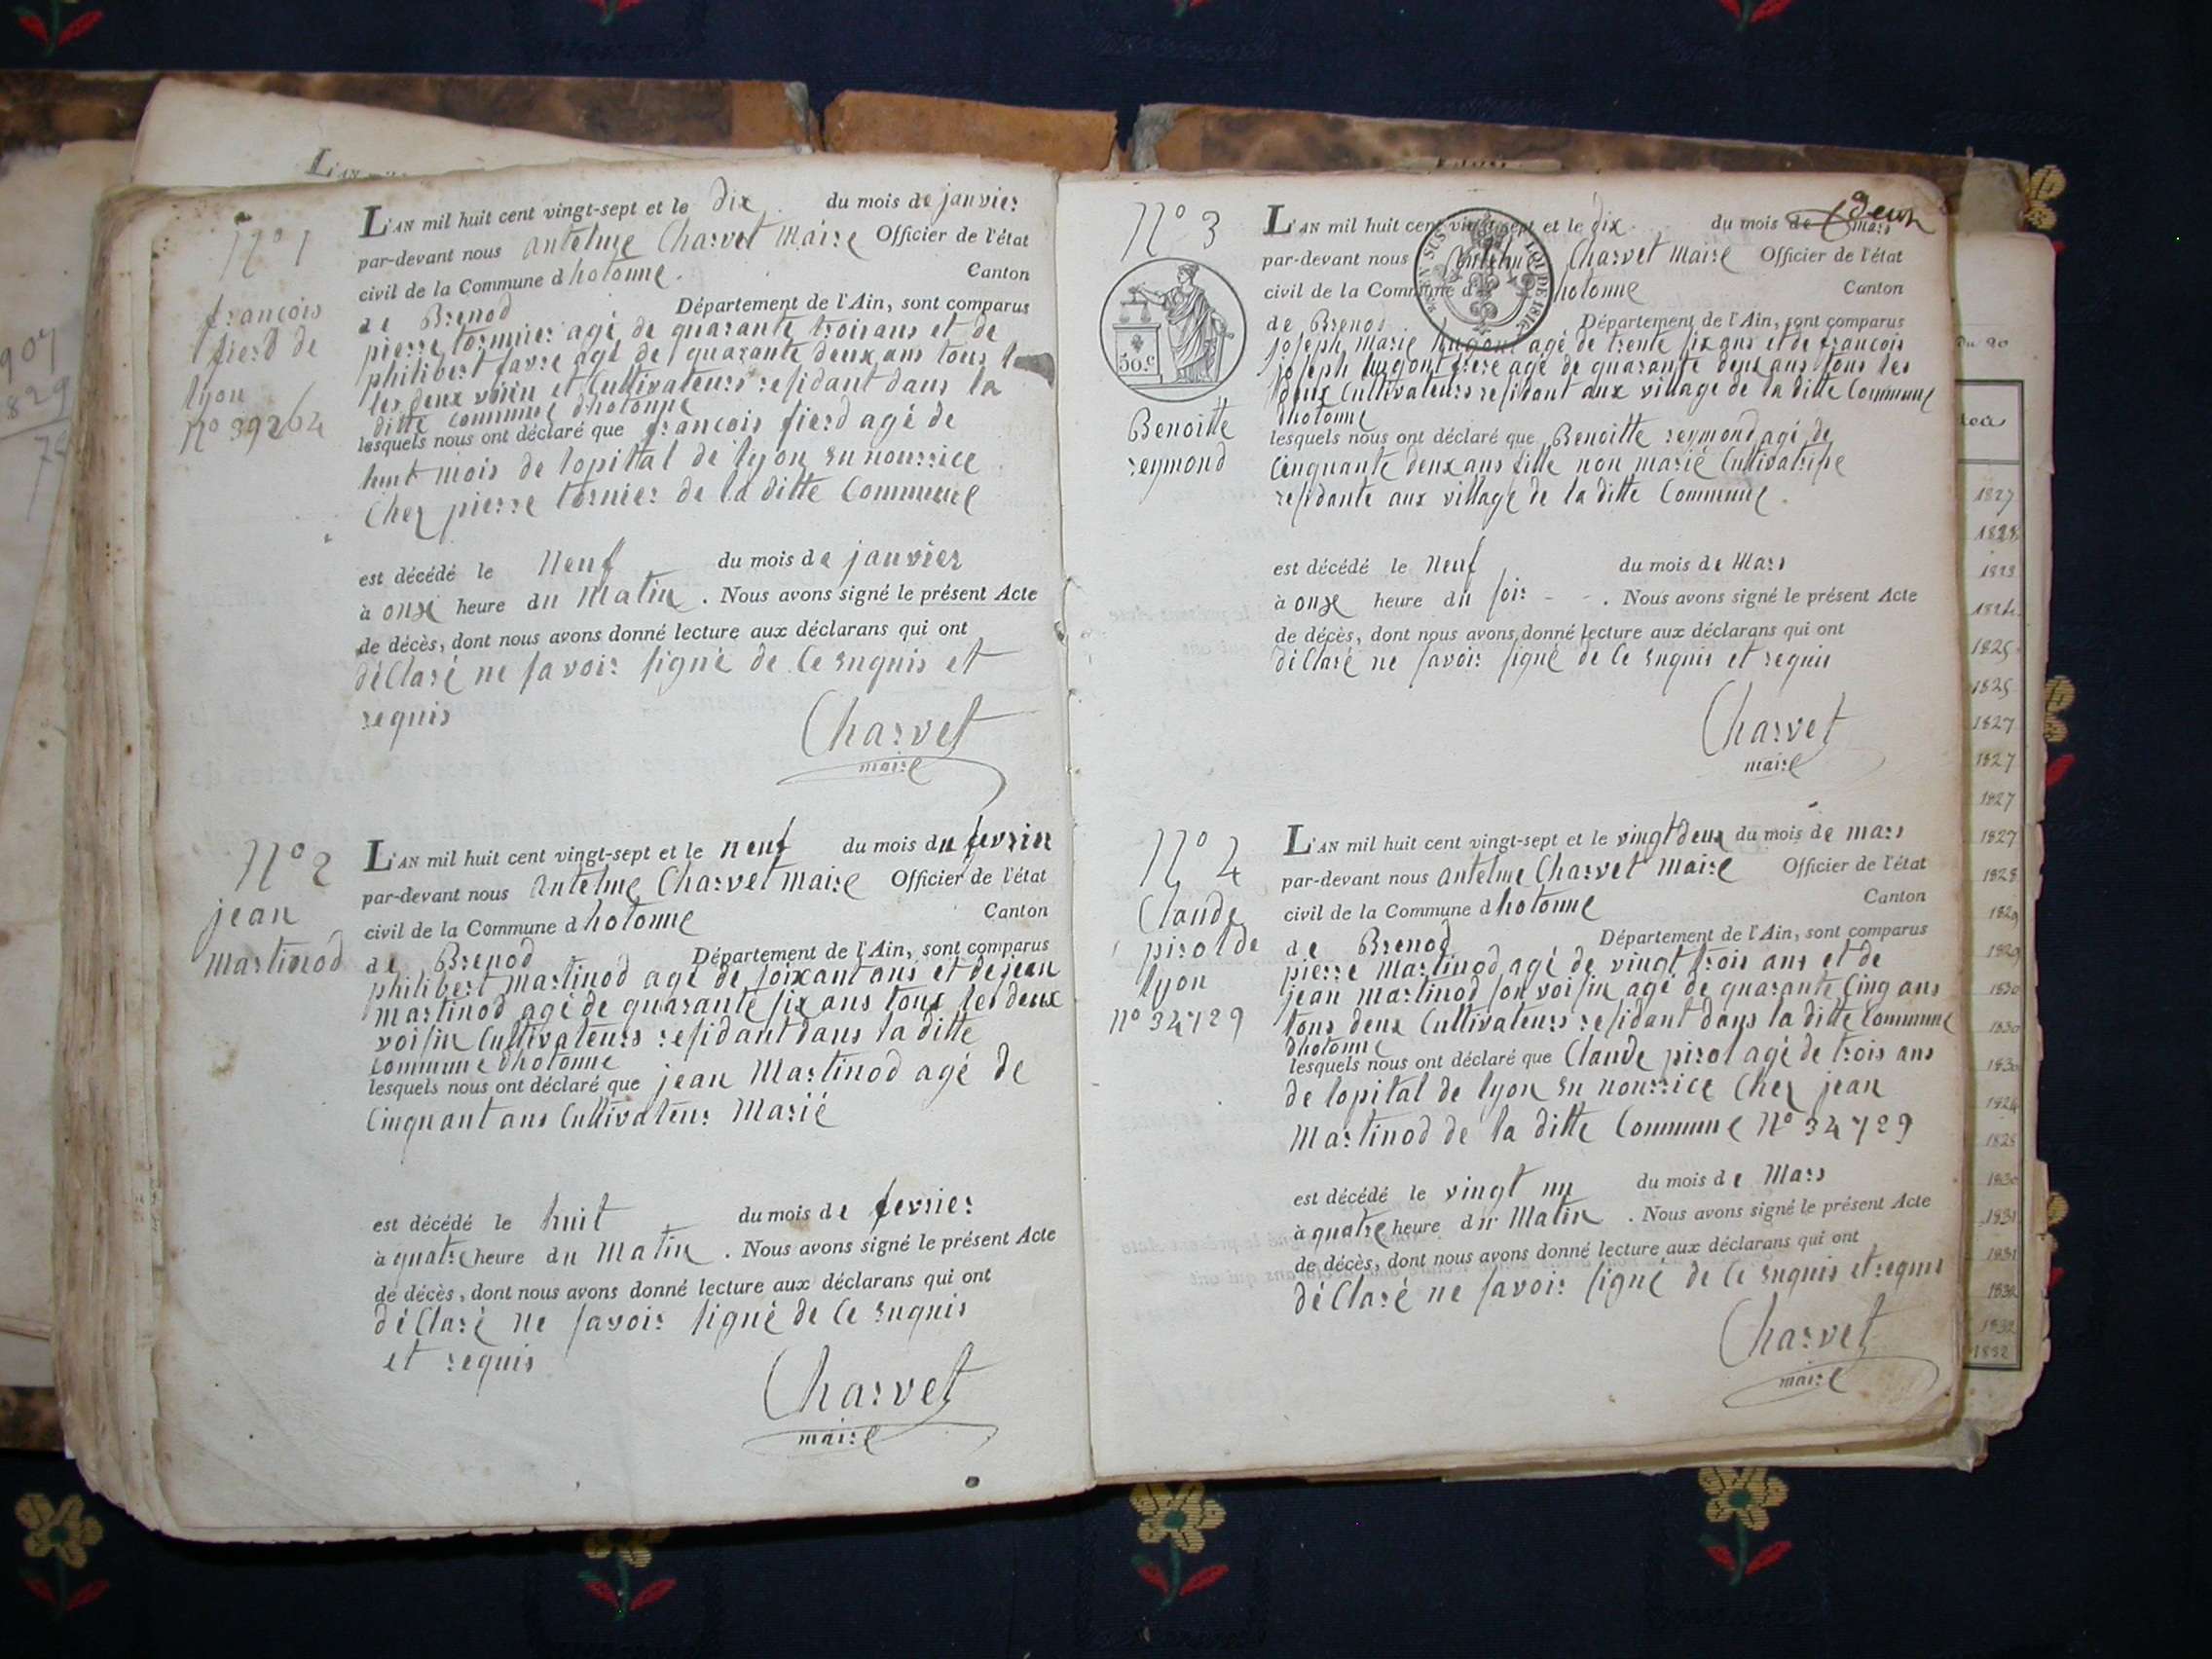 L'AN mil huit cent vingt-sept et le dix du mois de janvier
N° 1
par-devant nous antelme Charvet Maire Officier de l'état
civil de la Commune dhotonne. Canton
françois
fierd de
lyon
n° 39264
de Brenod Département de l'Ain, sont comparus
pierre tornier agé de quarante trois ans et de
philibert favre agé de quarante deux ans tous
les deux voisin et Cultivateurs residant dans la
ditte commune dhotonne
lesquels nous ont déclaré que françois fierd agé de
huit mois de lopital de lyon en nourrice
Chez pierre tornier de la ditte Commune
est décédé le Neuf du mois de janvier
à onze heure du Matin . Nous avons signé le présent Acte
de décès, dont nous avons donné lecture aux déclarans qui ont
déClaré ne savoir signé de Ce enquis et
requis
Charvet
maire
N° 2
jean
martinod
L'AN mil huit cent vingt-sept et le neuf du mois du fevrier
par-devant nous antelme Charvet maire Officier de l'état
civil de la Commune dhotonne Canton
de Brenod Département de l'Ain, sont comparus
philibert martinod agé de soixant ans et de jean
martinod agé de quarante six ans tous les deux
voisin Cultivateurs residant dans la ditte
commune dhotonne
lesquels nous ont déclaré que jean Martinod agé de
Cinquant ans Cultivateur Marié
est décédé le huit du mois de fevrier
à quatre heure du Matin . Nous avons signé le présent Acte
de décès, dont nous avons donné lecture aux déclarans qui ont
déClaré ne savoir signé de Ce enquis
et requis
Charvet
maire
deux
N° 3
L'AN mil huit cent vingt-sept et le dix du mois de mars
par-devant nous antelme Charvet Maire Officier de l'état
civil de la Commune dhotonne Canton
LOI DE 1816
50.c
Benoitte
reymond
de Brenod Département de l'Ain, sont comparus
joseph Marie hugont agé de trente six ans et de françois
joseph hugont frere agé de quarante deux ans tous les
deux Cultivateurs residant aux village de la ditte Commune
dhotonne
lesquels nous ont déclaré que Benoitte reymond agé de
Cinquante deux ans fille non marié Cultivatrise
residante aux village de la ditte Commune.
est décédé le neuf du mois de Mars
à onze heure du soir - - . Nous avons signé le présent Acte
de décès, dont nous avons donné lecture aux déclarans qui ont
déClaré ne savoir signé de Ce enquis et requis
Charvet
maire
N° 4
Claude
pirol de
lyon
n° 34729
L'AN mil huit cent vingt-sept et le vingt deux du mois de mars
par-devant nous antelme Charvet Maire Officier de l'état
civil de la Commune dhotonne Canton
de Brenod Département de l'Ain, sont comparus
pierre Martinod agé de vingt trois ans et de
jean martinod son voisin agé de quarante Cinq ans
tous deux Cultivateurs residant dans la ditte Commune
dhotonne
lesquels nous ont déclaré que Claude pirol agé de trois ans
de lopital de lyon en nourrice Chez jean
Martinod de la ditte Commune N° 34729
est décédé le vingt un du mois de Mars
à quatre heure du Matin . Nous avons signé le présent Acte
de décès, dont nous avons donné lecture aux déclarans qui ont
déClaré ne savoir signé de Ce enquis et requis
Charvet
maire
1827
1828
1824
1825
1827
1827
1827
1827
1828
1829
1829
1830
1830
1830
1830
1831
1831
1832
1832
1832